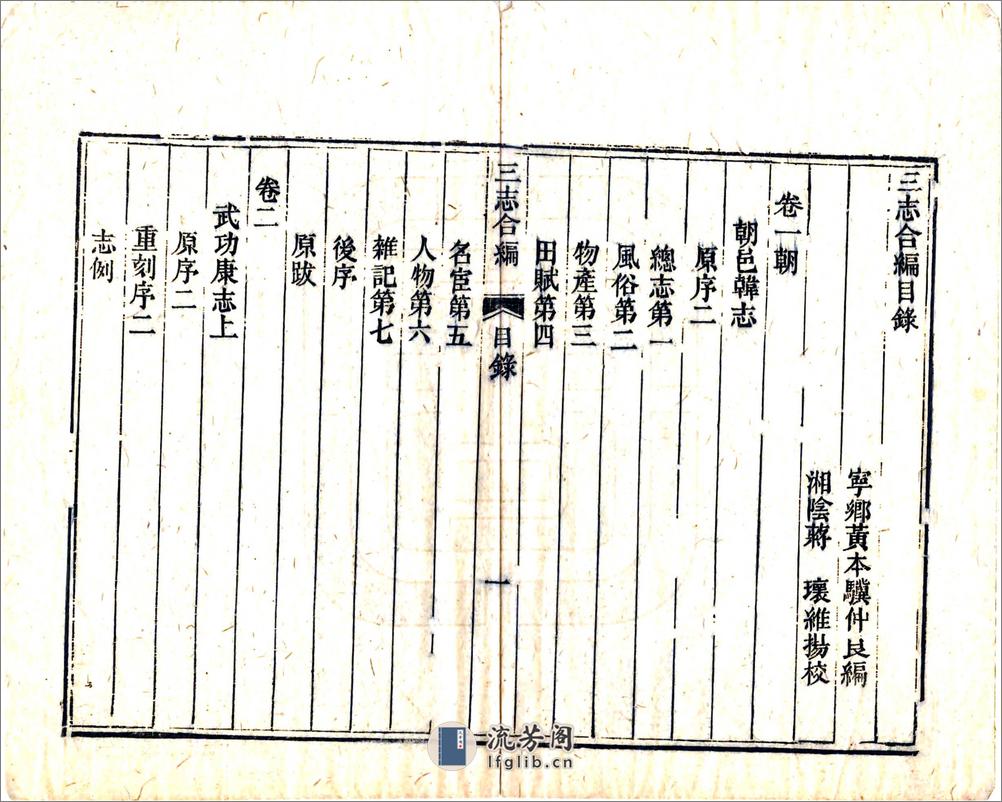 三志合編目錄
寧鄉黃本驥仲良編
湘陰蔣　瓌維揚校
卷一朝
朝邑韓志
原序二
總志第一
風俗第二
物產第三
田賦第四
三志合編 目錄 一
名宦第五
人物第六
雜記第七
後序
原跋
卷二
武功康志上
原序二
重刻序二
志例
流芳阁
lfglib.cn